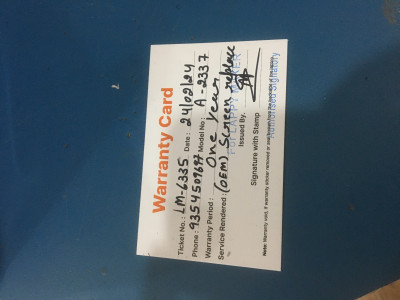 Warranty Card
Ticket No.: LM-6335 Date: 24/02/24
Phone: 9354509697 Model No: A-2337
Warranty Period: One year
Service Rendered: (OEM) Screen replace
Issued By.
Authorised Signatory
Signature with Stamp
Note: Warranty void, if warranty sticker removed or